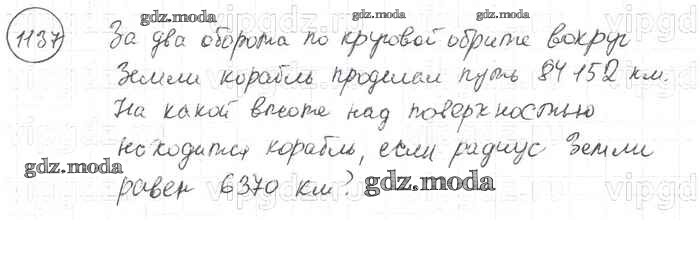 1137 За два оборота по круговой обрите вокруг
Земли корабль проделал путь 84 152 км.
На какой высоте над поверхностью
находится корабль, если радиус Земли
равен 6370 км?
gdz.moda
gdz.moda
gdz.moda
gdz.moda
gdz.moda
gdz.moda
gdz.moda